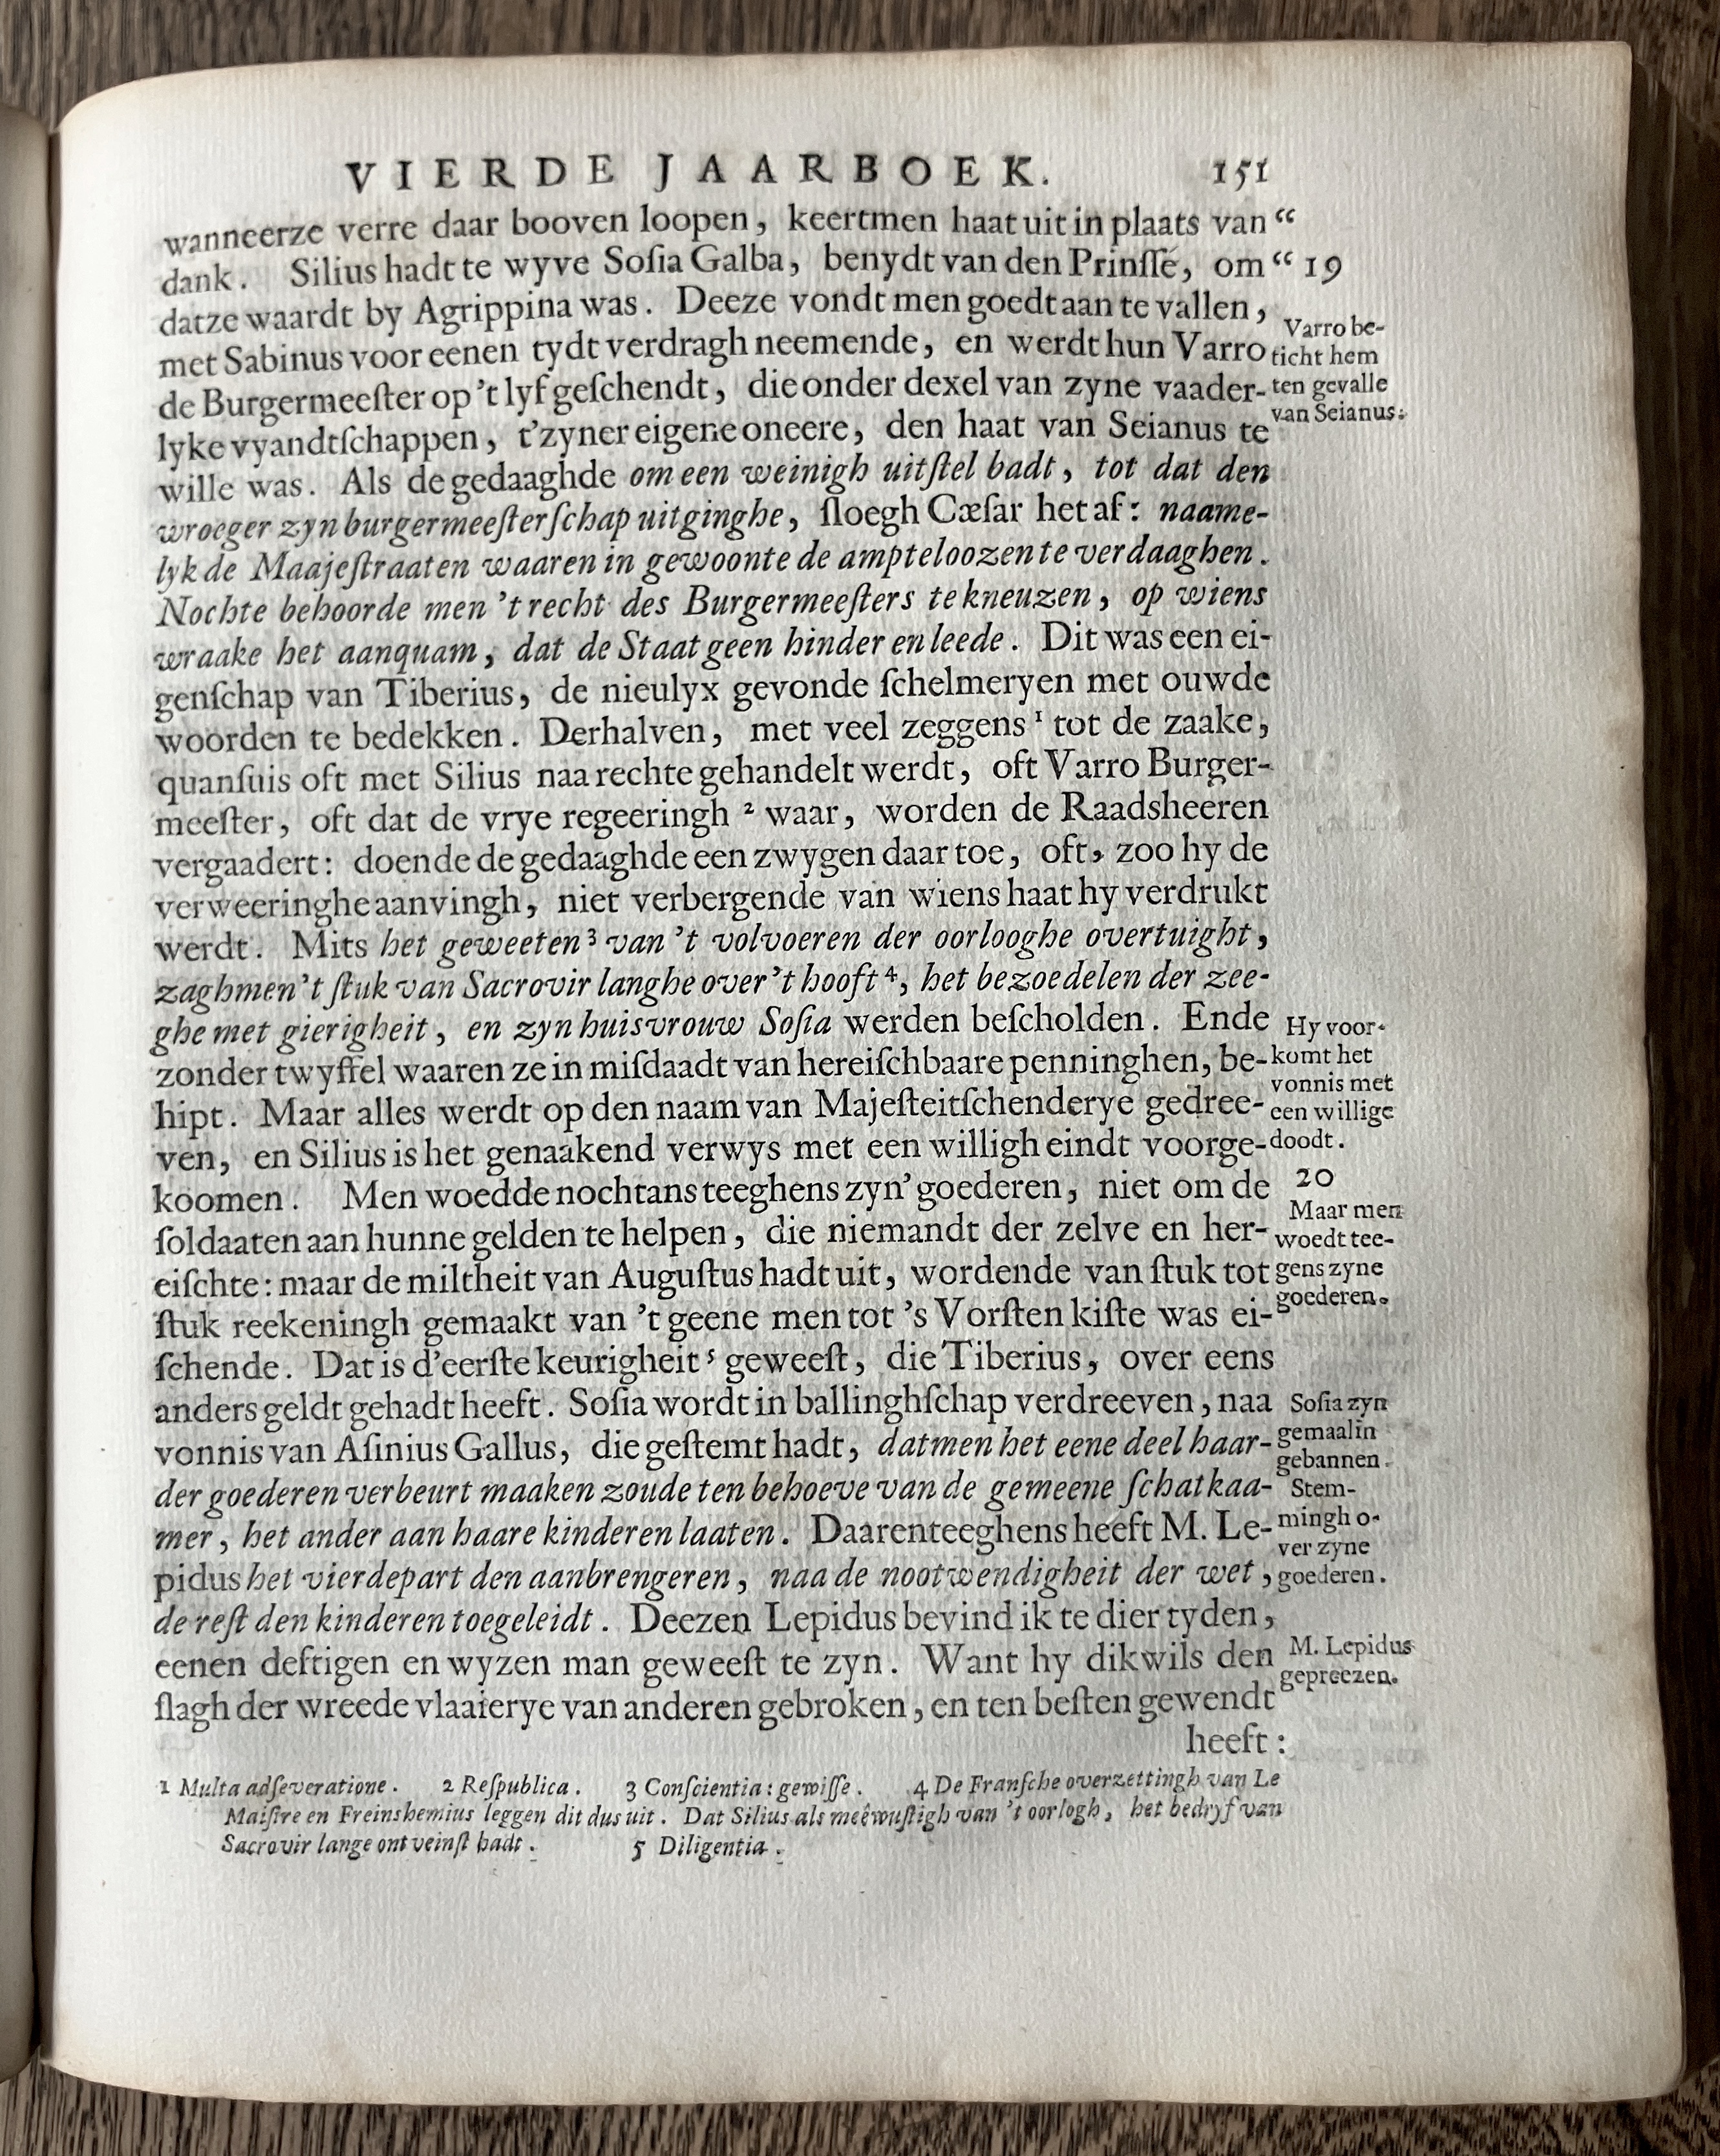 VIERDE JAARBOEK. 151
wanneerze verre daar booven loopen, keertmen haat uit in plaats van “
dank. Silius hadt te wyve Soſia Galba, benydt van den Prinſſe, om “ 19
datze waardt by Agrippina was. Deeze vondt men goedt aan te vallen,
met Sabinus voor eenen tydt verdragh neemende, en werdt hun Varro
de Burgermeeſter op 't lyf geſchendt, die onder dexel van zyne vaader-
lyke vyandtſchappen, t'zyner eigene oneere, den haat van Seianus te
wille was. Als de gedaaghde om een weinigh uitſtel badt, tot dat den
wroeger zyn burgermeeſterſchap uitginghe, ſloegh Cæſar het af: naame-
lyk de Maajeſtraaten waaren in gewoonte de ampteloozen te verdaaghen.
Nochte behoorde men 't recht des Burgermeeſters te kneuzen, op wiens
wraake het aanquam, dat de Staat geen hinder en leede. Dit was een ei-
genſchap van Tiberius, de nieulyx gevonde ſchelmeryen met ouwde
woorden te bedekken. Derhalven, met veel zeggens 1 tot de zaake,
quanſuis oft met Silius naa rechte gehandelt werdt, oft Varro Burger-
meeſter, oft dat de vrye regeeringh 2 waar, worden de Raadsheeren
vergaadert: doende de gedaaghde een zwygen daar toe, oft, zoo hy de
verweeringhe aanvingh, niet verbergende van wiens haat hy verdrukt
werdt. Mits het geweeten 3 van 't volvoeren der oorlooghe overtuight,
zaghmen 't ſtuk van Sacrovir langhe over 't hooft 4, het bezoedelen der zee-
ghe met gierigheit, en zyn huisvrouw Soſia werden beſcholden. Ende
zonder twyffel waaren ze in miſdaadt van hereiſchbaare penninghen, be-
hipt. Maar alles werdt op den naam van Majeſteitſchenderye gedree-
ven, en Silius is het genaakend verwys met een willigh eindt voorge-
koomen. Men woedde nochtans teeghens zyn' goederen, niet om de
ſoldaaten aan hunne gelden te helpen, die niemandt der zelve en her-
eiſchte: maar de miltheit van Auguſtus hadt uit, wordende van ſtuk tot
ſtuk reekeningh gemaakt van 't geene men tot 's Vorſten kiſte was ei-
ſchende. Dat is d'eerſte keurigheit 5 geweeſt, die Tiberius, over eens
anders geldt gehadt heeft. Soſia wordt in ballinghſchap verdreeven, naa
vonnis van Aſinius Gallus, die geſtemt hadt, datmen het eene deel haar-
der goederen verbeurt maaken zoude ten behoeve van de gemeene ſchatkaa-
mer, het ander aan haare kinderen laaten. Daarenteeghens heeft M. Le-
pidus het vierdepart den aanbrengeren, naa de nootwendigheit der wet,
de reſt den kinderen toegeleidt. Deezen Lepidus bevind ik te dier tyden,
eenen deftigen en wyzen man geweeſt te zyn. Want hy dikwils den
ſlagh der wreede vlaaierye van anderen gebroken, en ten beſten gewendt
heeft:
Varro be-
ticht hem
ten gevalle
van Seianus.
Hy voor-
komt het
vonnis met
een willige
doodt.
20
Maar men
woedt tee-
gens zyne
goederen.
Soſia zyn
gemaalin
gebannen.
Stem-
mingh o-
ver zyne
goederen.
M. Lepidus
gepreezen.
1 Multa adſeveratione. 2 Reſpublica. 3 Conſcientia: gewiſſe. 4 De Franſche overzettingh van Le
Maiſtre en Freinshemius leggen dit dus uit. Dat Silius als meêwuſtigh van 't oorlogh, het bedryf van
Sacrovir lange ontveinſt hadt. 5 Diligentia.